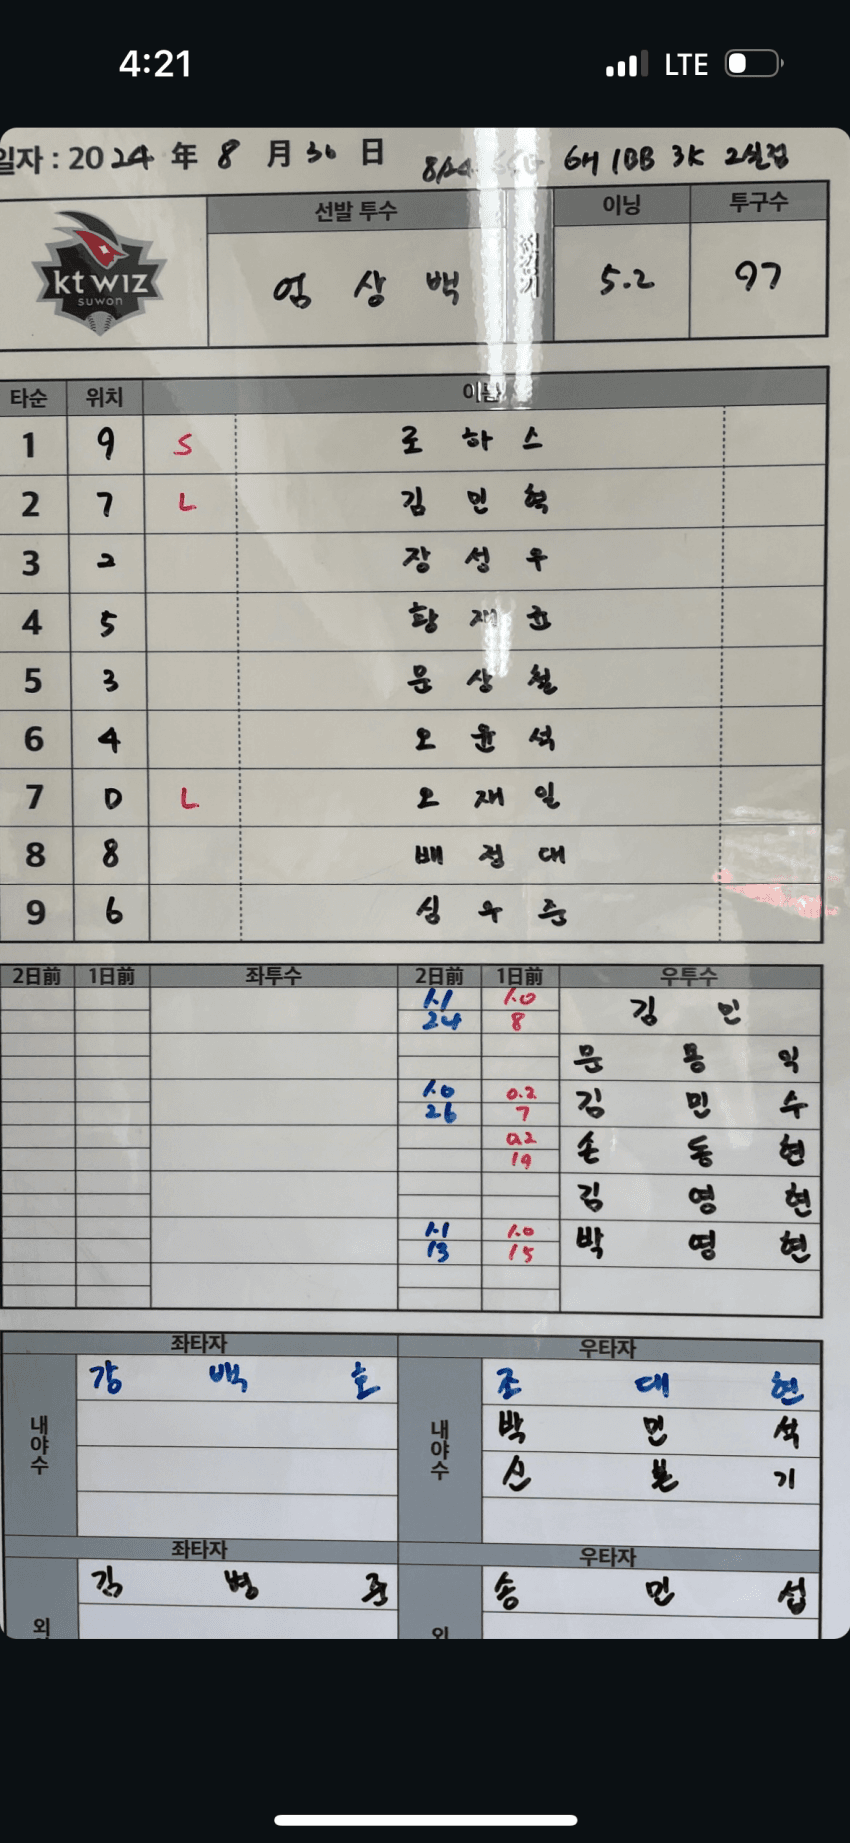 4:21 LTE
일자 : 2024 年 8 月 30 日 8/24 6H 1BB 3K 2실점
kt wiz
suwon
선발 투수 이닝 투구수
엄 상 백 전경기 5.2 97
타순 위치 이름
1 9 S 로 하 스
2 7 L 김 민 혁
3 2 장 성 우
4 5 황 재 균
5 3 문 상 철
6 4 오 윤 석
7 D L 오 재 일
8 8 배 정 대
9 6 심 우 준
2日前 1日前 좌투수 2日前 1日前 우투수
1.1 1.0 김 민
24 8
문 용 익
1.0 0.2 김 민 수
26 7
0.2 손 동 현
19
김 영 현
1.1 1.0 박 영 현
13 15
좌타자 우타자
내야수 강 백 호 내야수 조 대 현
박 민 석
신 본 기
좌타자 우타자
외 김 병 준 외 송 민 섭